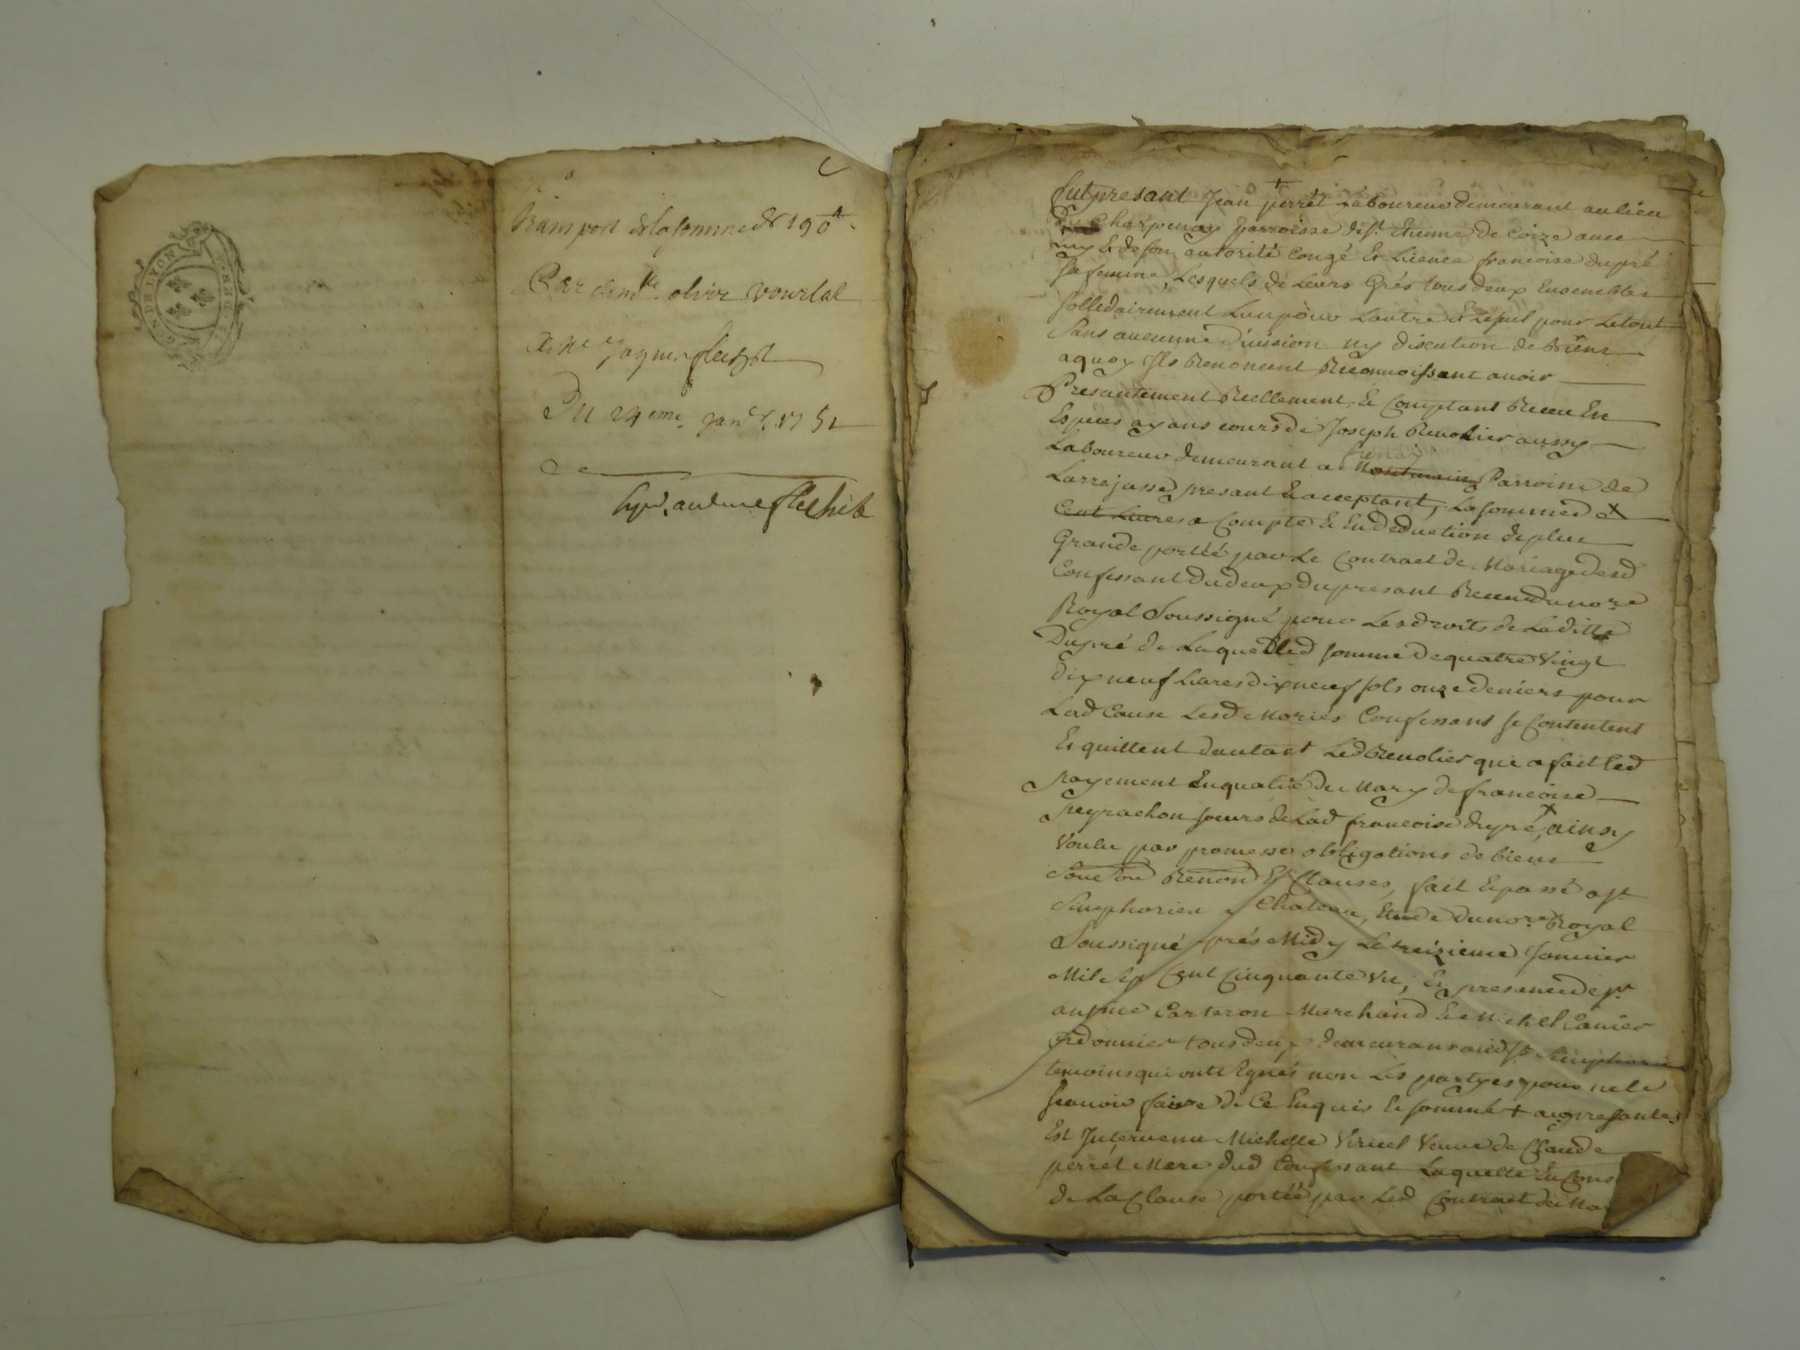 GEN. DE LYON
Transport de la somme de 190 lt.
Par dem.lle olive vourlat
a M.e Jaques
Du 24eme. Janer. 1751
fut present Jean perret Laboureur demeurant au lieu
Du Charpenay parroisse de st. Etienne de Coize avec
luy Et de son autorité Congé Et Licence francoise dupré
sa femme, Lesquels de Leurs Grés tous deux Ensembles
sollidairement Lun pour Lautre et le seul pour Le tout
Sans aucunne Division ny discution de Biens
aquoy ils Renoncent Reconnoissent avoir
Presantement Réellement, Et Comptant Receu En
Especes ayans cours de Joseph Revolier aussy
Laboureur demeurant a Parroisse de
Larrejasse presant Et acceptant, La somme de +
Cent Livres a Compte Et En deduction de plus
Grande portée par Le Contract de Mariage desd
Confessant dudeux du presant Receu du nore
Royal Soussigné pour Les droits de Laditte
Dupré de Laquelle somme de quatre Vingt
dix neuf Livres dix neuf sols onze deniers pour
Lad Cause Lesd Mariés Confessant se Contentent
Et quittent dautant Led Revolier qui a fait Led
payement En qualité de Mary de francoise
peyrachon soeurs de Lad francoise dupré, + ainsy
Voulu par promesses obligations de biens
Renon Et Clauses, fait Et passé a st
Simphorien Le Chateau, Etude du nore Royal
Soussigné aprés Midy Le treizieme Janvier
Mil sep Cent Cinquante Un, En presence de sr
antoine Carteron Marchand Et Michel
Cordonnier tous deux demeurans aud st. Simphorien
temoins qui ont signés non Les partyes pour ne le
scavoir faire de Ce Enquis Et sommé + aux presantes
Est Intervenu Michelle Veuve de Claude
perrét Mere dud Confessant Laquelle En Cons
de La Clause portée par Led Contract de Ma